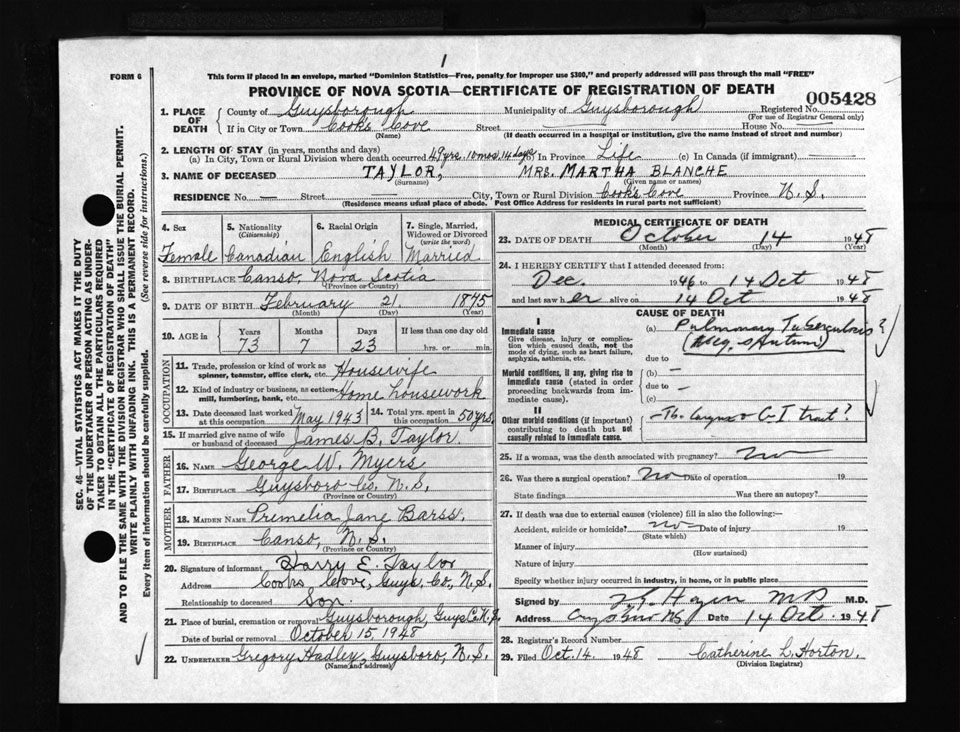 FORM 6
This form if placed in an envelope, marked "Dominion Statistics—Free, penalty for improper use $300," and properly addressed will pass through the mail "FREE"
PROVINCE OF NOVA SCOTIA—CERTIFICATE OF REGISTRATION OF DEATH
005428
1. PLACE OF DEATH
County of Guysborough Municipality of Guysborough Registered No.
(For use of Registrar General only)
If in City or Town Cooks Cove Street House No.
(Name) (If death occurred in a hospital or institution, give the name instead of street and number)
2. LENGTH OF STAY (in years, months and days)
(a) In City, Town or Rural Division where death occurred 49 yrs. 10 mos. 14 days (b) In Province Life (c) In Canada (if immigrant) —
3. NAME OF DECEASED TAYLOR, MRS. MARTHA BLANCHE
(Surname) (Given name or names)
RESIDENCE No. — Street City, Town or Rural Division Cooks Cove Province N.S.
(Residence means usual place of abode. Post Office Address for residents in rural parts not sufficient)
4. Sex
Female
5. Nationality
(Citizenship)
Canadian
6. Racial Origin
English
7. Single, Married, Widowed or Divorced
(write the word)
Married
8. BIRTHPLACE Canso, Nova Scotia
(Province or Country)
9. DATE OF BIRTH February 21 1875
(Month) (Day) (Year)
10. AGE in Years Months Days If less than one day old
73 7 23 hrs. or min.
OCCUPATION
11. Trade, profession or kind of work as spinner, teamster, office clerk, etc. Housewife
12. Kind of industry or business, as cotton mill, lumbering, bank, etc. Home housework
13. Date deceased last worked at this occupation May 1943
14. Total yrs. spent in this occupation 50 yrs.
15. If married give name of wife or husband of deceased James B. Taylor
FATHER
16. NAME George W. Myers
17. BIRTHPLACE Guysboro Co. N.S.
(Province or Country)
MOTHER
18. MAIDEN NAME Premelia Jane Barss.
19. BIRTHPLACE Canso, N.S.
(Province or Country)
20. Signature of informant Harry E. Taylor
Address Cooks Cove, Guys. Co., N.S.
Relationship to deceased Son
21. Place of burial, cremation or removal Guysborough, Guys Co. N.S.
Date of burial or removal October 15, 1948
22. UNDERTAKER Gregory Hadley, Guysboro, N.S.
(Name and address)
MEDICAL CERTIFICATE OF DEATH
23. DATE OF DEATH October 14 1948
(Month) (Day) (Year)
24. I HEREBY CERTIFY that I attended deceased from:
Dec. 1946 to 14 Oct 1948
and last saw her alive on 14 Oct 1948
CAUSE OF DEATH
I
Immediate cause
Give disease, injury or complication which caused death, not the mode of dying, such as heart failure, asphyxia, asthenia, etc.
(a) Pulmonary Tuberculosis
due to
Morbid conditions, if any, giving rise to immediate cause (stated in order proceeding backwards from immediate cause).
(b) —
due to —
(c)
II
Other morbid conditions (if important) contributing to death but not causally related to immediate cause.
25. If a woman, was the death associated with pregnancy? No
26. Was there a surgical operation? No Date of operation 19
State findings Was there an autopsy?
27. If death was due to external causes (violence) fill in also the following:—
Accident, suicide or homicide? no Date of injury 19
(State which)
Manner of injury
(How sustained)
Nature of injury
Specify whether injury occurred in industry, in home, or in public place
Signed by MD M.D.
Address Date 14 Oct. 1948
28. Registrar's Record Number
29. Filed Oct. 14. 1948 Catherine L. Horton.
(Division Registrar)
SEC. 46—VITAL STATISTICS ACT MAKES IT THE DUTY
OF THE UNDERTAKER OR PERSON ACTING AS UNDER-
TAKER TO OBTAIN ALL THE PARTICULARS REQUIRED
IN THE "CERTIFICATE OF REGISTRATION OF DEATH"
AND TO FILE THE SAME WITH THE DIVISION REGISTRAR WHO SHALL ISSUE THE BURIAL PERMIT.
WRITE PLAINLY WITH UNFADING INK. THIS IS A PERMANENT RECORD.
Every item of information should be carefully supplied. (See reverse side for instructions.)